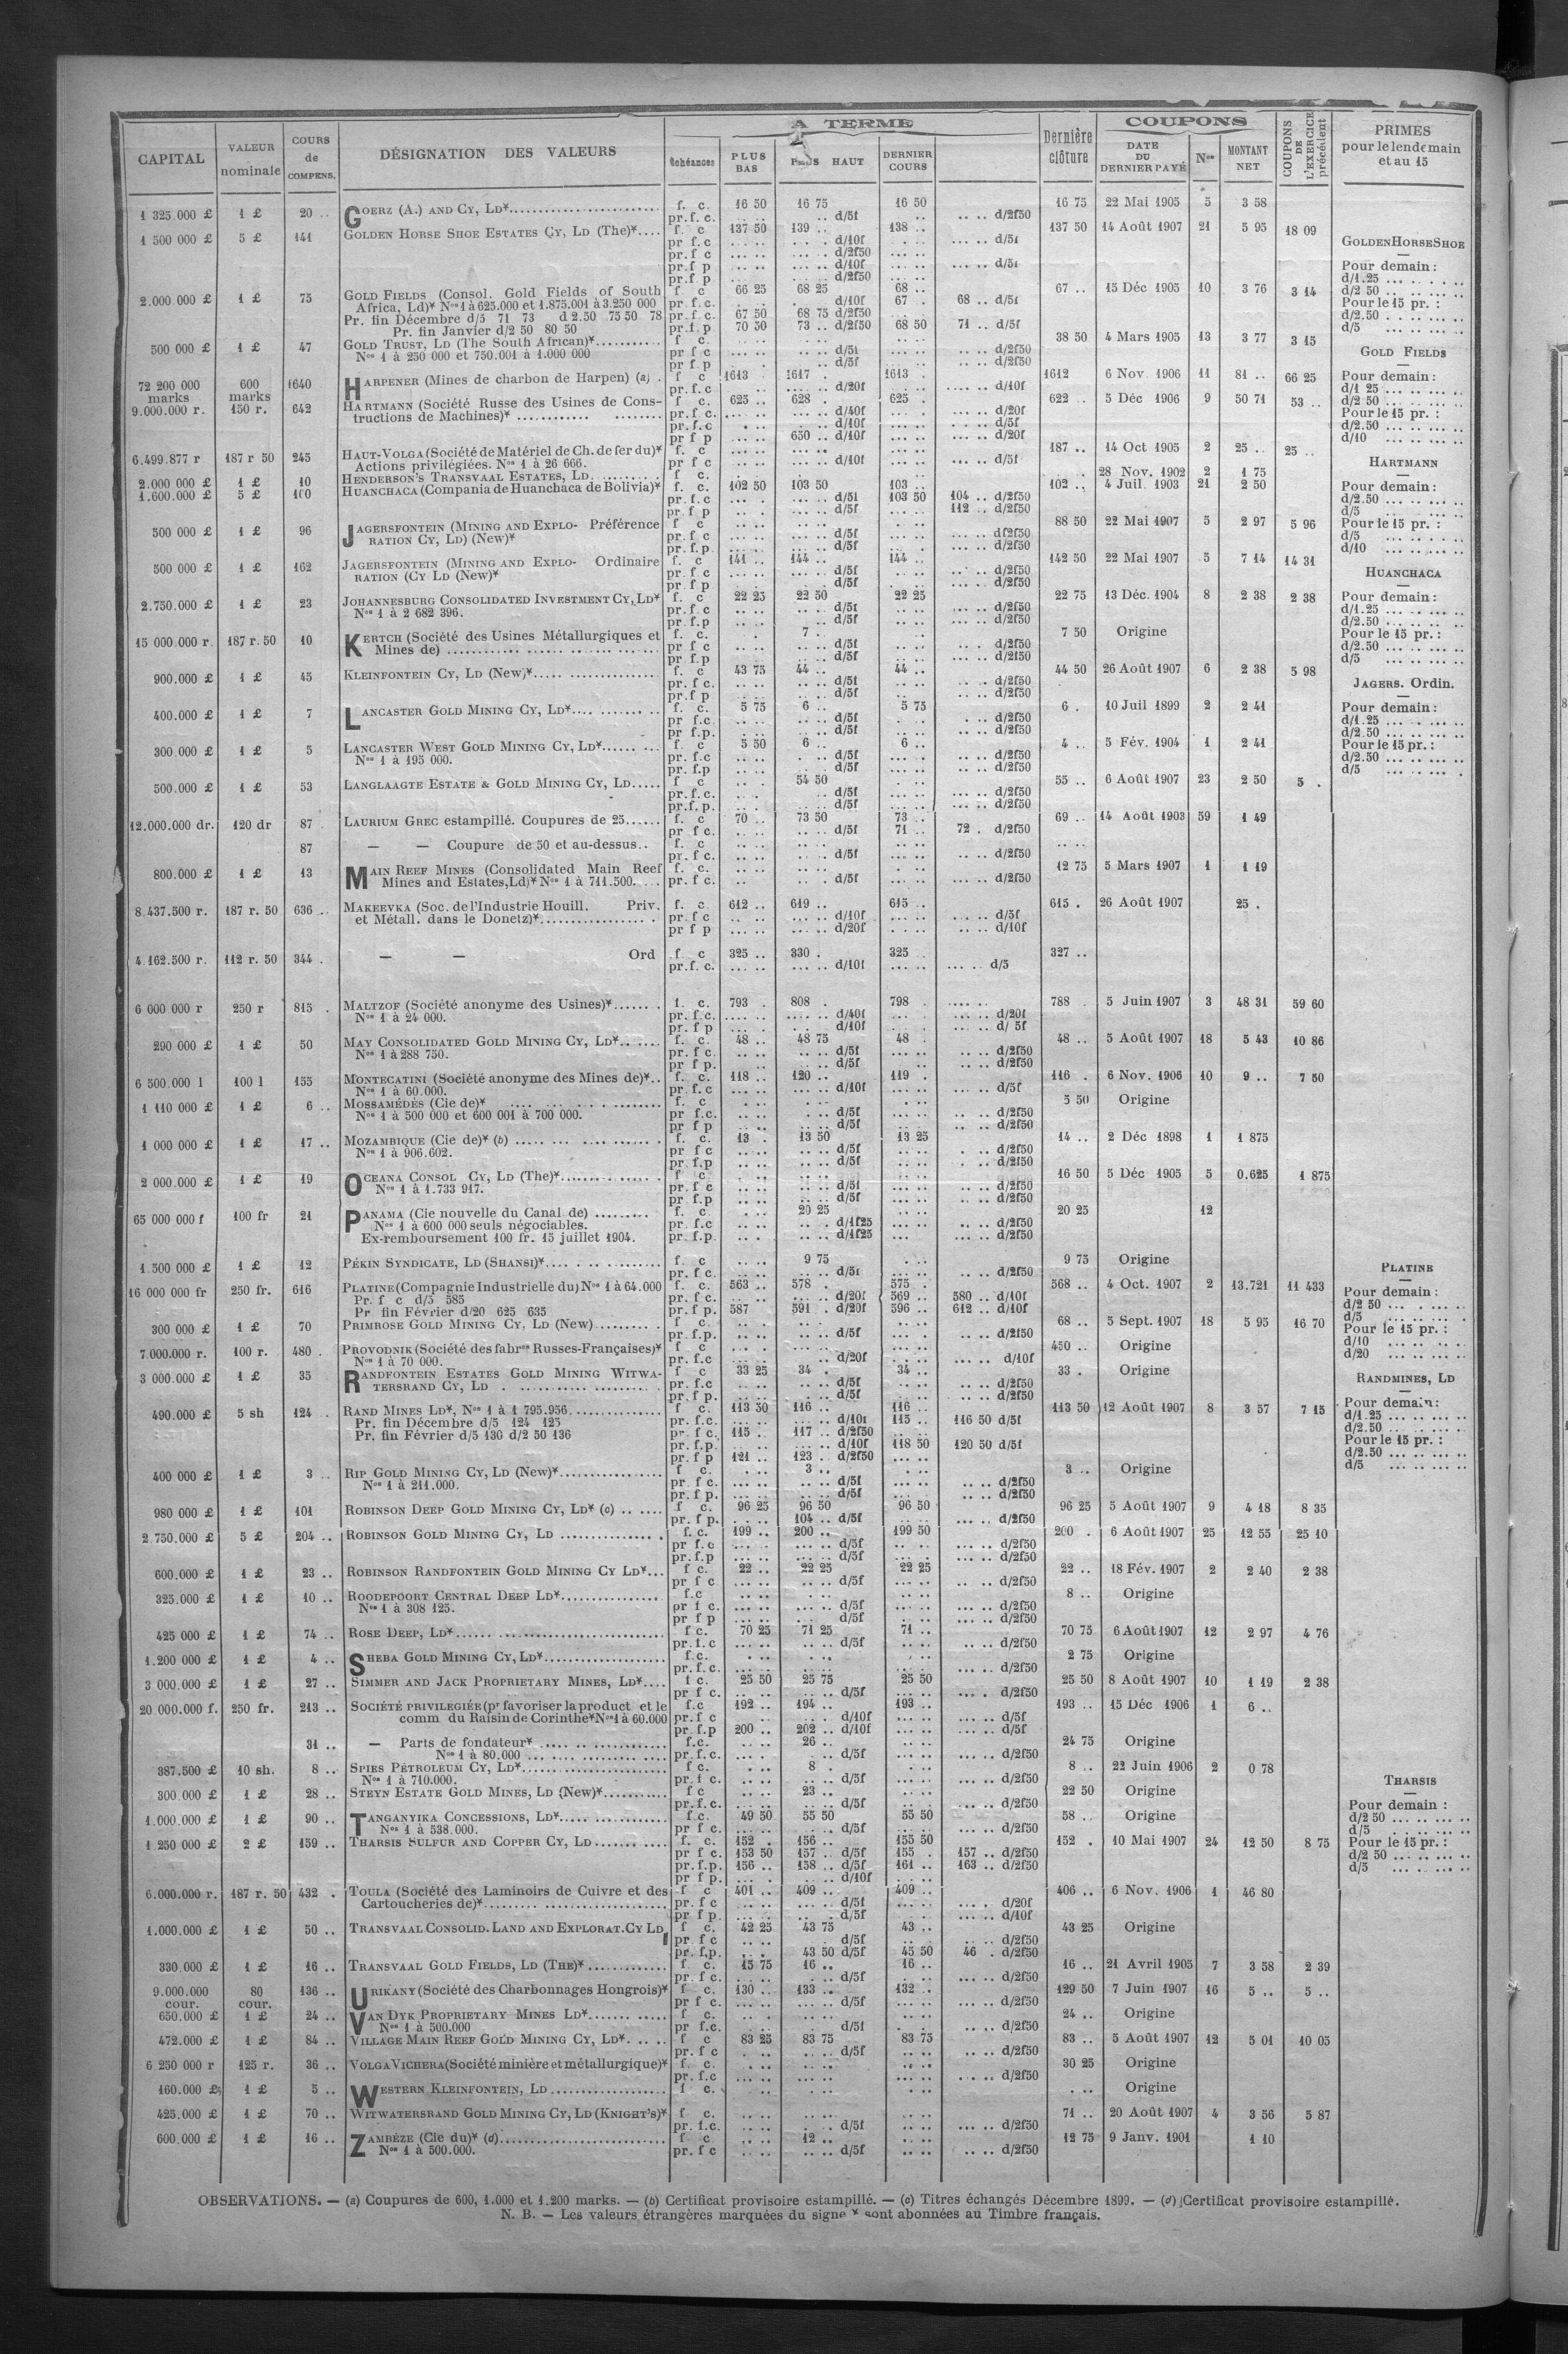 CAPITAL | VALEUR nominale | COURS de COMPENS. | DÉSIGNATION DES VALEURS | A TERME | Dernière clôture | COUPONS | COUPONS DE L'EXERCICE précédent | PRIMES pour le lendemain et au 15
échéances | PLUS BAS | PLUS HAUT | DERNIER COURS | DATE DU DERNIER PAYÉ | Nos | MONTANT NET
1 325.000 £ | 1 £ | 20 .. | GOERZ (A.) AND CY, LD* | f. c. | 16 50 | 16 75 | 16 50 | 16 75 | 22 Mai 1905 | 5 | 3 58
pr. f. c. | d/5f | d/2f50
1 500 000 £ | 5 £ | 141 | GOLDEN HORSE SHOE ESTATES CY, LD (The)* | f. c | 137 50 | 139 .. | 138 .. | 137 50 | 14 Août 1907 | 21 | 5 95 | 18 09
pr f. c | d/10f | d/5f
pr. f c | d/2f50
pr.f p | d/10f | d/5f
pr.f.p | d/2f50
2.000.000 £ | 1 £ | 75 | GOLD FIELDS (Consol. Gold Fields of South | f c | 66 25 | 68 25 | 68 .. | 67 .. | 15 Déc 1905 | 10 | 3 76 | 3 14
Africa, Ld)* Nos 1 à 625.000 et 1.875.001 à 3.250 000 | pr. f.c. | d/10f | 67 . | 68 .. d/5f
Pr. fin Décembre d/5 71 73 d 2.50 75 50 78 | pr.f.c. | 67 50 | 68 75 d/2f50
Pr. fin Janvier d/2 50 80 50 | pr.f.p | 70 50 | 73 .. d/2f50 | 68 50 | 71 .. d/5f
500 000 £ | 1 £ | 47 | GOLD TRUST, LD (The South African)* | f c. | 38 50 | 4 Mars 1905 | 13 | 3 77 | 3 15
Nos 1 à 250 000 et 750.001 à 1.000 000 | pr f c | d/5f | d/2f50
pr f p | d/5f | d/2f50
72 200 000 marks | 600 marks | 1640 | HARPENER (Mines de charbon de Harpen) (a) | f c | 1613 | 1617 . | 1613 . | 1612 | 6 Nov. 1906 | 11 | 81 .. | 66 25
pr. f.c | d/20f | d/10f
9.000.000 r. | 150 r. | 642 | HARTMANN (Société Russe des Usines de Cons- | f. c. | 625 .. | 628 . | 625 . | 622 .. | 5 Déc 1906 | 9 | 50 71 | 53 ..
tructions de Machines)* | pr.f.c. | d/40f | d/20f
pr.f.c | d/10f | d/5f
pr f p | 650 .. d/10f | d/20f
6.499.877 r | 187 r 50 | 245 | HAUT-VOLGA (Société de Matériel de Ch. de fer du)* | f. c | 187 .. | 14 Oct 1905 | 2 | 25 .. | 25 ..
Actions privilégiées. Nos 1 à 26 666. | pr f c | d/10f | d/5f
2.000 000 £ | 1 £ | 10 | HENDERSON'S TRANSVAAL ESTATES, LD | f c. | 28 Nov. 1902 | 2 | 1 75
1.600.000 £ | 5 £ | 100 | HUANCHACA (Compania de Huanchaca de Bolivia)* | f. c. | 102 50 | 103 50 | 103 .. | 102 .. | 4 Juil. 1903 | 21 | 2 50
pr. f.c | d/5f | 103 50 | 104 .. d/2f50
pr. f p | d/5f | 112 .. d/2f50
500 000 £ | 1 £ | 96 | JAGERSFONTEIN (MINING AND EXPLO- Préférence | f c | 88 50 | 22 Mai 1907 | 5 | 2 97 | 5 96
RATION CY, LD) (New)* | pr. f c | d/5f | d/2f50
pr. f.p. | d/5f | d/2f50
500 000 £ | 1 £ | 162 | JAGERSFONTEIN (MINING AND EXPLO- Ordinaire | f. c | 141 .. | 144 .. | 144 .. | 142 50 | 22 Mai 1907 | 5 | 7 14 | 14 31
RATION (CY LD (New)* | pr. f c | d/5f | d/2f50
pr f p | d/5f | d/2f50
2.750.000 £ | 1 £ | 23 | JOHANNESBURG CONSOLIDATED INVESTMENT CY, LD* | f. c | 22 25 | 22 50 | 22 25 | 22 75 | 13 Déc. 1904 | 8 | 2 38 | 2 38
Nos 1 à 2 682 396. | pr.f.c | d/5f | d/2f50
pr.f.p | d/5f | d/2f50
15 000.000 r. | 187 r.50 | 10 | KERTCH (Société des Usines Métallurgiques et | f. c. | 7 .. | 7 50 | Origine
Mines de) | pr f c | d/5f | d/2f50
pr. f.p | d/5f | d/2f50
900.000 £ | 1 £ | 45 | KLEINFONTEIN CY, LD (New)* | f. c | 43 75 | 44 .. | 44 .. | 44 50 | 26 Août 1907 | 6 | 2 38 | 5 98
pr. f c. | d/5f | d/2f50
pr.f p | d/5f | d/2f50
400.000 £ | 1 £ | 7 | LANCASTER GOLD MINING CY, LD* | f. c. | 5 75 | 6 .. | 5 75 | 6 . | 10 Juil 1899 | 2 | 2 41
pr f.c. | d/5f | d/2f50
pr f.p. | d/5f | d/2f50
300.000 £ | 1 £ | 5 | LANCASTER WEST GOLD MINING CY, LD* | f. c | 5 50 | 6 .. | 6 .. | 4 .. | 5 Fév. 1904 | 1 | 2 41
Nos 1 à 195 000. | pr. f.c | d/5f | d/2f50
pr. f.p | d/5f | d/2f50
500.000 £ | 1 £ | 53 | LANGLAAGTE ESTATE & GOLD MINING CY, LD | f c | 54 50 | 55 .. | 6 Août 1907 | 23 | 2 50 | 5 .
pr.f.c. | d/5f | d/2f50
pr.f.p. | d/5f | d/2f50
12.000.000 dr. | 120 dr | 87 . | LAURIUM GREC estampillé. Coupures de 25 | f. c | 70 .. | 73 50 | 73 .. | 69 .. | 14 Août 1903 | 59 | 1 49
pr f c. | d/5f | 71 .. | 72 . d/2f50
87 | — — Coupure de 50 et au-dessus.. | f. c
pr. f c. | d/5f | d/2f50
800.000 £ | 1 £ | 13 | MAIN REEF MINES (Consolidated Main Reef | f. c. | 12 75 | 5 Mars 1907 | 1 | 1 19
Mines and Estates, Ld)* Nos 1 à 711.500. | pr. f c. | d/5f | d/2f50
8.437.500 r. | 187 r. 50 | 636 .. | MAKEEVKA (Soc. de l'Industrie Houill. Priv. | f. c. | 612 .. | 619 .. | 615 .. | 615 . | 26 Août 1907 | 25 .
et Métall. dans le Donetz)* | pr. f c | d/10f | d/5f
pr f p | d/20f | d/10f
4.162.500 r. | 112 r. 50 | 344 . | — — Ord | f. c | 325 .. | 330 . | 325 . | 327 ..
pr.f. c. | d/10f | d/5
6 000 000 r | 250 r | 815 . | MALTZOF (Société anonyme des Usines)* | f. c. | 793 . | 808 . | 798 . | 788 . | 5 Juin 1907 | 3 | 48 31 | 59 60
Nos 1 à 24 000. | pr. f.c. | d/40f | d/20f
pr. f p | d/10f | d/ 5f
290 000 £ | 1 £ | 50 | MAY CONSOLIDATED GOLD MINING CY, LD* | f. c. | 48 .. | 48 75 | 48 . | 48 .. | 5 Août 1907 | 18 | 5 43 | 10 86
Nos 1 à 288 750. | pr. f c. | d/5f | d/2f50
pr f p. | d/5f | d/2f50
6 500.000 l | 100 l | 155 | MONTECATINI (Société anonyme des Mines de)* | f. c. | 118 .. | 120 .. | 119 . | 116 . | 6 Nov. 1906 | 10 | 9 .. | 7 50
Nos 1 à 60.000. | pr. f.c | d/10f | d/5f
1 110 000 £ | 1 £ | 6 .. | MOSSAMÉDÈS (Cie de)* | f. c | 5 50 | Origine
Nos 1 à 500 000 et 600 001 à 700 000. | pr f.c. | d/5f | d/2f50
pr f p | d/5f | d/2f50
1 000 000 £ | 1 £ | 17 .. | MOZAMBIQUE (Cie de)* (b) | f. c. | 13 . | 13 50 | 13 25 | 14 .. | 2 Déc 1898 | 1 | 1 875
Nos 1 à 906.602. | pr f c | d/5f | d/2f50
pr. f.p | d/5f | d/2f50
2 000.000 £ | 1 £ | 19 | OCEANA CONSOL CY, LD (The)* | f c | 16 50 | 5 Déc 1905 | 5 | 0.625 | 1 875
Nos 1 à 1.733 917. | pr. f c | d/5f | d/2f50
pr f.p | d/5f | d/2f50
65 000 000 f | 100 fr | 21 | PANAMA (Cie nouvelle du Canal de) | f. c. | 20 25 | 20 25 | 12
Nos 1 à 600 000 seuls négociables. | pr. f.c | d/1f25 | d/2f50
Ex-remboursement 100 fr. 15 juillet 1904. | pr. f.p. | d/1f25 | d/2f50
1.500 000 £ | 1 £ | 12 | PÉKIN SYNDICATE, LD (SHANSI)* | f. c | 9 75 | 9 75 | Origine
pr. f c. | d/5f | d/2f50
16 000 000 fr | 250 fr. | 616 | PLATINE (Compagnie Industrielle du) Nos 1 à 64.000 | f. c. | 563 .. | 578 . | 575 . | 568 .. | 4 Oct. 1907 | 2 | 13.721 | 11 433
Pr. f c d/5 585 | pr. f c. | d/20f | 569 .. | 580 .. d/10f
Pr fin Février d/20 625 635 | pr. f p. | 587 | 591 . d/20f | 596 .. | 612 .. d/10f
300 000 £ | 1 £ | 70 | PRIMROSE GOLD MINING CY, LD (New) | f c. | 68 .. | 5 Sept. 1907 | 18 | 5 95 | 16 70
pr. f.p. | d/5f | d/2f50
7.000.000 r. | 100 r. | 480 . | PROVODNIK (Société des fabres Russes-Françaises)* | f c | 450 .. | Origine
Nos 1 à 70 000. | pr. f.c | d/20f | d/10f
3 000.000 £ | 1 £ | 35 | RANDFONTEIN ESTATES GOLD MINING WITWA- | f c | 33 25 | 34 . | 34 .. | 33 . | Origine
TERSRAND CY, LD | pr. f.c | d/5f | d/2f50
pr. f p. | d/5f | d/2f50
490.000 £ | 5 sh | 124 .. | RAND MINES LD*, Nos 1 à 1 795.956. | f c. | 113 50 | 116 .. | 116 .. | 113 50 | 12 Août 1907 | 8 | 3 57 | 7 15
Pr. fin Décembre d/5 124 125 | pr. f.c. | d/10f | 115 .. | 116 50 d/5f
Pr. fin Février d/5 130 d/2 50 136 | pr. f c. | 115 .. | 117 .. d/2f50
pr. f.p. | d/10f | 118 50 | 120 50 d/5f
pr f p | 121 .. | 123 . d/2f50
400 000 £ | 1 £ | 3 .. | RIP GOLD MINING CY, LD (New)* | f c. | 3 .. | 3 .. | Origine
Nos 1 à 211.000. | pr. f c. | d/5f | d/2f50
pr. f p. | d/5f | d/2f50
980 000 £ | 1 £ | 101 | ROBINSON DEEP GOLD MINING CY, LD* (c) | f c. | 96 25 | 96 50 | 96 50 | 96 25 | 5 Août 1907 | 9 | 4 18 | 8 35
pr. f p. | 104 .. d/5f | d/2f50
2.750.000 £ | 5 £ | 204 .. | ROBINSON GOLD MINING CY, LD | f. c. | 199 .. | 200 .. | 199 50 | 200 . | 6 Août 1907 | 25 | 12 55 | 25 10
pr f.c | d/5f | d/2f50
pr. f.p | d/5f | d/2f50
600.000 £ | 1 £ | 23 .. | ROBINSON RANDFONTEIN GOLD MINING CY LD* | f c. | 22 .. | 22 25 | 22 25 | 22 .. | 18 Fév. 1907 | 2 | 2 40 | 2 38
pr f c | d/5f | d/2f50
325.000 £ | 1 £ | 10 .. | ROODEPOORT CENTRAL DEEP LD* | f.c | 8 .. | Origine
Nos 1 à 308 125. | pr f c. | d/5f | d/2f50
pr f p | d/5f | d/2f50
425 000 £ | 1 £ | 74 .. | ROSE DEEP, LD* | f c. | 70 25 | 71 25 | 71 .. | 70 75 | 6 Août 1907 | 12 | 2 97 | 4 76
pr. f.c | d/5f | d/2f50
1.200 000 £ | 1 £ | 4 .. | SHEBA GOLD MINING CY, LD* | f.c. | 2 75 | Origine
pr. f.c. | d/2f50
3 000.000 £ | 1 £ | 27 .. | SIMMER AND JACK PROPRIETARY MINES, LD* | f c. | 25 50 | 25 75 | 25 50 | 25 50 | 8 Août 1907 | 10 | 1 19 | 2 38
pr f c. | d/5f | d/2f50
20 000.000 f. | 250 fr. | 213 .. | SOCIÉTÉ PRIVILEGIÉE (pr favoriser la product et le | f.c | 192 .. | 194 .. | 193 .. | 193 .. | 15 Déc 1906 | 1 | 6 ..
comm du Raisin de Corinthe* Nos 1 à 60.000 | pr. f c | d/10f | d/5f
pr. f.p | 200 .. | 202 .. d/10f | d/5f
31 .. | — Parts de fondateur* | f.c. | 26 .. | 24 75 | Origine
Nos 1 à 80.000 | pr. f.c. | d/5f | d/2f50
387.500 £ | 10 sh. | 8 .. | SPIES PETROLEUM CY, LD* | f c. | 8 . | 8 .. | 22 Juin 1906 | 2 | 0 78
Nos 1 à 710.000. | pr. f c. | d/5f | d/2f50
300.000 £ | 1 £ | 28 .. | STEYN ESTATE GOLD MINES, LD (New)* | f c | 23 .. | 22 50 | Origine
pr.f.c. | d/5f | d/2f50
1.000.000 £ | 1 £ | 90 .. | TANGANYIKA CONCESSIONS, LD* | f.c. | 49 50 | 55 50 | 55 50 | 58 .. | Origine
Nos 1 à 538.000. | pr f c. | d/5f | d/2f50
1 250 000 £ | 2 £ | 159 .. | THARSIS SULFUR AND COPPER CY, LD | f. c. | 152 . | 156 .. | 155 50 | 152 . | 10 Mai 1907 | 24 | 12 50 | 8 75
pr f c. | 153 50 | 157 .. d/5f | 155 . | 157 .. d/2f50
pr. f.p. | 156 .. | 158 .. d/5f | 161 .. | 163 .. d/2f50
pr f p. | d/10f
6.000.000 r. | 187 r. 50 | 432 . | TOULA (Société des Laminoirs de Cuivre et des | f c | 401 .. | 409 .. | 409 .. | 406 .. | 6 Nov. 1906 | 1 | 46 80
Cartoucheries de)* | pr. f c | d/5f | d/20f
pr f p. | d/5f | d/10f
1.000.000 £ | 1 £ | 50 .. | TRANSVAAL CONSOLID. LAND AND EXPLORAT. CY LD | f c. | 42 25 | 43 75 | 43 .. | 43 25 | Origine
pr. f c | d/5f | d/2f50
pr. f.p. | 43 50 d/5f | 45 50 | 46 . d/2f50
330.000 £ | 1 £ | 16 .. | TRANSVAAL GOLD FIELDS, LD (THE)* | f c. | 15 75 | 16 .. | 16 .. | 16 .. | 21 Avril 1905 | 7 | 3 58 | 2 39
pr. f c. | d/5f | d/2f50
9.000.000 cour. | 80 cour. | 136 .. | URIKANY (Société des Charbonnages Hongrois)* | f c. | 130 .. | 133 .. | 132 .. | 129 50 | 7 Juin 1907 | 16 | 5 .. | 5 ..
pr f c. | d/5f | d/2f50
650.000 £ | 1 £ | 24 .. | VAN DYK PROPRIETARY MINES LD* | f c. | 24 .. | Origine
Nos 1 à 500.000 | pr f.c. | d/5f | d/2f50
472.000 £ | 1 £ | 84 .. | VILLAGE MAIN REEF GOLD MINING CY, LD* | f c | 83 25 | 83 75 | 83 75 | 83 .. | 5 Août 1907 | 12 | 5 01 | 10 05
pr. f c | d/5f | d/2f50
6 250 000 r | 125 r. | 36 .. | VOLGA VICHERA (Société minière et métallurgique)* | f. c. | 30 25 | Origine
pr. f.c | d/2f50
160.000 £ | 1 £ | 5 .. | WESTERN KLEINFONTEIN, LD | f c. | Origine
425.000 £ | 1 £ | 70 .. | WITWATERSRAND GOLD MINING CY, LD (KNIGHT'S)* | f c. | 71 .. | 20 Août 1907 | 4 | 3 56 | 5 87
pr. f.c. | d/5f | d/2f50
600.000 £ | 1 £ | 16 .. | ZAMBÈZE (Cie du)* (d) | f c | 12 .. | 12 75 | 9 Janv. 1901 | 1 10
Nos 1 à 500.000. | pr. f c | d/5f | d/2f50
GOLDEN HORSE SHOE
Pour demain :
d/1.25
d/2 50
Pour le 15 pr. :
d/2.50
d/5
GOLD FIELDS
Pour demain :
d/1 25
d/2 50
Pour le 15 pr. :
d/2.50
d/10
HARTMANN
Pour demain :
d/2.50
d/5
Pour le 15 pr. :
d/5
d/10
HUANCHACA
Pour demain :
d/1.25
d/2.50
Pour le 15 pr. :
d/2.50
d/5
JAGERS. Ordin.
Pour demain :
d/1.25
d/2.50
Pour le 15 pr. :
d/2.50
d/5
PLATINE
Pour demain :
d/2 50
d/5
Pour le 15 pr. :
d/10
d/20
RANDMINES, LD
Pour demain :
d/1.25
d/2.50
Pour le 15 pr. :
d/2.50
d/5
THARSIS
Pour demain :
d/2 50
d/5
Pour le 15 pr. :
d/2 50
d/5
OBSERVATIONS. — (a) Coupures de 600, 1.000 et 1.200 marks. — (b) Certificat provisoire estampillé. — (c) Titres échangés Décembre 1899. — (d) Certificat provisoire estampillé.
N. B. — Les valeurs étrangères marquées du signe * sont abonnées au Timbre français.